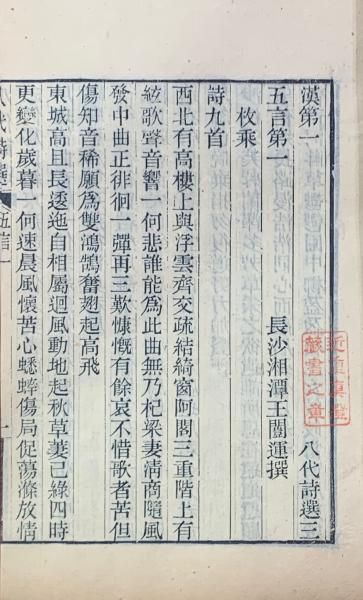 漢第一 八代詩選三
五言第一 長沙湘潭王闓運撰
枚乘
詩九首
西北有高樓上與浮雲齊交疏結綺窗阿閣三重階上有
絃歌聲音響一何悲誰能為此曲無乃杞梁妻清商隨風
發中曲正徘徊一彈再三歎慷慨有餘哀不惜歌者苦但
傷知音稀願為雙鴻鵠奮翅起高飛
東城高且長逶迤自相屬迴風動地起秋草萋已綠四時
更變化歲暮一何速晨風懷苦心蟋蟀傷局促蕩滌放情
八代詩選 五言一
藏書之章